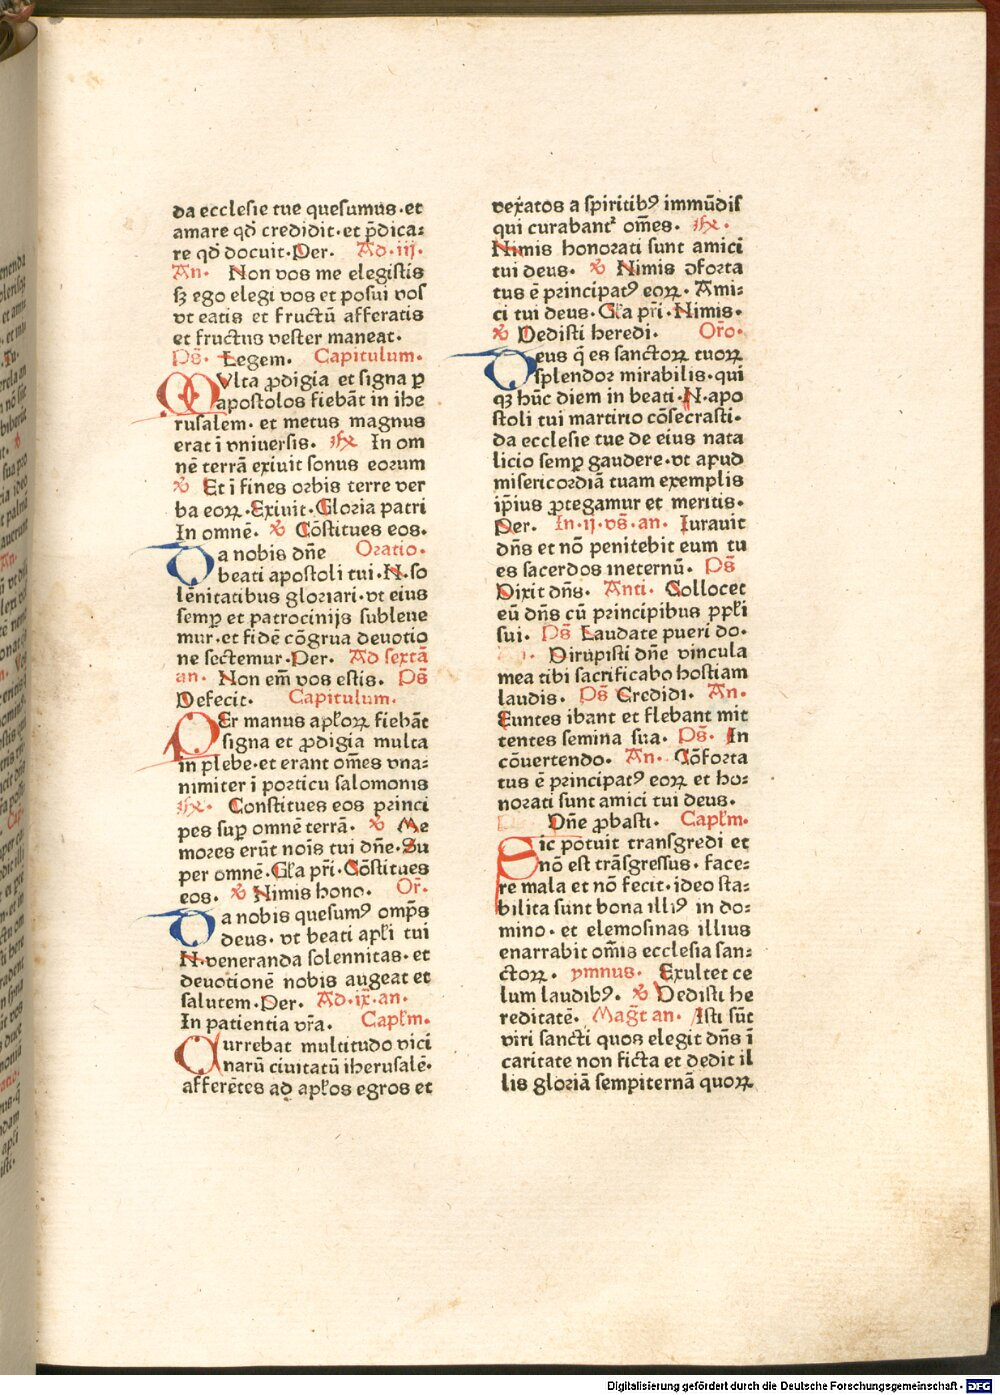 da ecclesie tue quesumus·et
amare qd̄ credidit·et p̄dica⸗
re qd̄ docuit·Per. Ad·iij·
An· Non vos me elegistis
sꝫ ego elegi vos et posui vos
vt eatis et fructū afferatis
et fructus vester maneat·
Ps̄· Legem. Capitulum·
MVlta ꝓdigia et signa ꝑ
apostolos fiebāt in ihe
rusalem· et metus magnus
erat ī vniuersis· ℟ In om
nē terrā exiuit sonus eorum
℣ Et ī fines orbis terre ver
ba eoꝝ·Exiuit·Gloria patri
In omnē· ℣ Cōstitues eos·
Da nobis dn̄e Oratio·
beati apostoli tui·N·so
lēnitatibus gloriari·vt eius
semꝑ et patrocinijs subleue
mur·et fidē cōgrua deuotio
ne sectemur·Per. Ad sextā
an· Non em̄ vos estis. Ps̄
Defecit. Capitulum.
PEr manus apl̄oꝝ fiebāt
signa et ꝓdigia multa
in plebe·et erant om̄es vna⸗
nimiter ī porticu salomonis
℟· Constitues eos princi
pes suꝑ omnē terrā· ℣ Me
mores erūt nois̄ tui dn̄e·Su
per omnē·Gl̄a pr̄i·Cōstitues
eos· ℣ Nimis hono. Or̄·
Da nobis quesumꝰ omp̄s
deus· vt beati apl̄i tui
N·veneranda solennitas·et
deuotionē nobis augeat et
salutem·Per. Ad·ix·an·
In patientia vr̄a. Capl̄m·
Currebat multitudo vici
narū ciuitatū iherusalē·
afferētes ad apl̄os egros et
vexatos a spiritibꝰ immūdis
qui curabant᷑ om̄es. ℟·
Nimis honorati sunt amici
tui deus· ℣ Nimis ꝯforta
tus ē principatꝰ eoꝝ· Ami⸗
ci tui deus·Gl̄a pr̄i·Nimis·
℣ Dedisti heredi· Or̄o·
Deus q̄ es sanctoꝝ tuoꝝ
splendor mirabilis·qui
qꝫ hūc diem in beati·N·apo
stoli tui martirio cōsecrasti·
da ecclesie tue de eius nata
licio semꝑ gaudere·vt apud
misericordiā tuam exemplis
ip̄ius ꝓtegamur et meritis·
Per. In·ij·vs̄·an. Iurauit
dn̄s et nō penitebit eum tu
es sacerdos ineternū. Ps̄
Dixit dn̄s. Anti. Collocet
eū dn̄s cū principibus ppl̄i
sui. Ps̄ Laudate pueri do·
Dirupisti dn̄e vincula
mea tibi sacrificabo hostiam
laudis. Ps̄ Credidi. An·
Euntes ibant et flebant mit
tentes semina sua. Ps̄· In
cōuertendo. An· Cōforta
tus ē principatꝰ eoꝝ et ho⸗
norati sunt amici tui deus·
Dn̄e ꝓbasti· Capl̄m·
Sic potuit transgredi et
nō est trāsgressus· face⸗
re mala et nō fecit·ideo sta⸗
bilita sunt bona illiꝰ in do⸗
mino· et elemosinas illius
enarrabit om̄is ecclesia san⸗
ctoꝝ· ymnus. Exultet ce
lum laudibꝰ. ℣ Dedisti he
reditatē. Magt̄ an· Isti sūt
viri sancti quos elegit dn̄s ī
caritate non ficta et dedit il
lis gloriā sempiternā quoꝝ
Digitalisierung gefördert durch die Deutsche Forschungsgemeinschaft · DFG